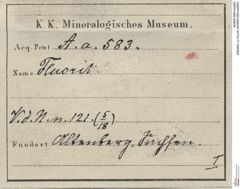 K. K. Mineralogisches Museum.
Acq. Post A. a. 583.
Name Fluorit.
V. d. N. n. 121. (5/18)
Fundort Altenberg, Sachsen.
I